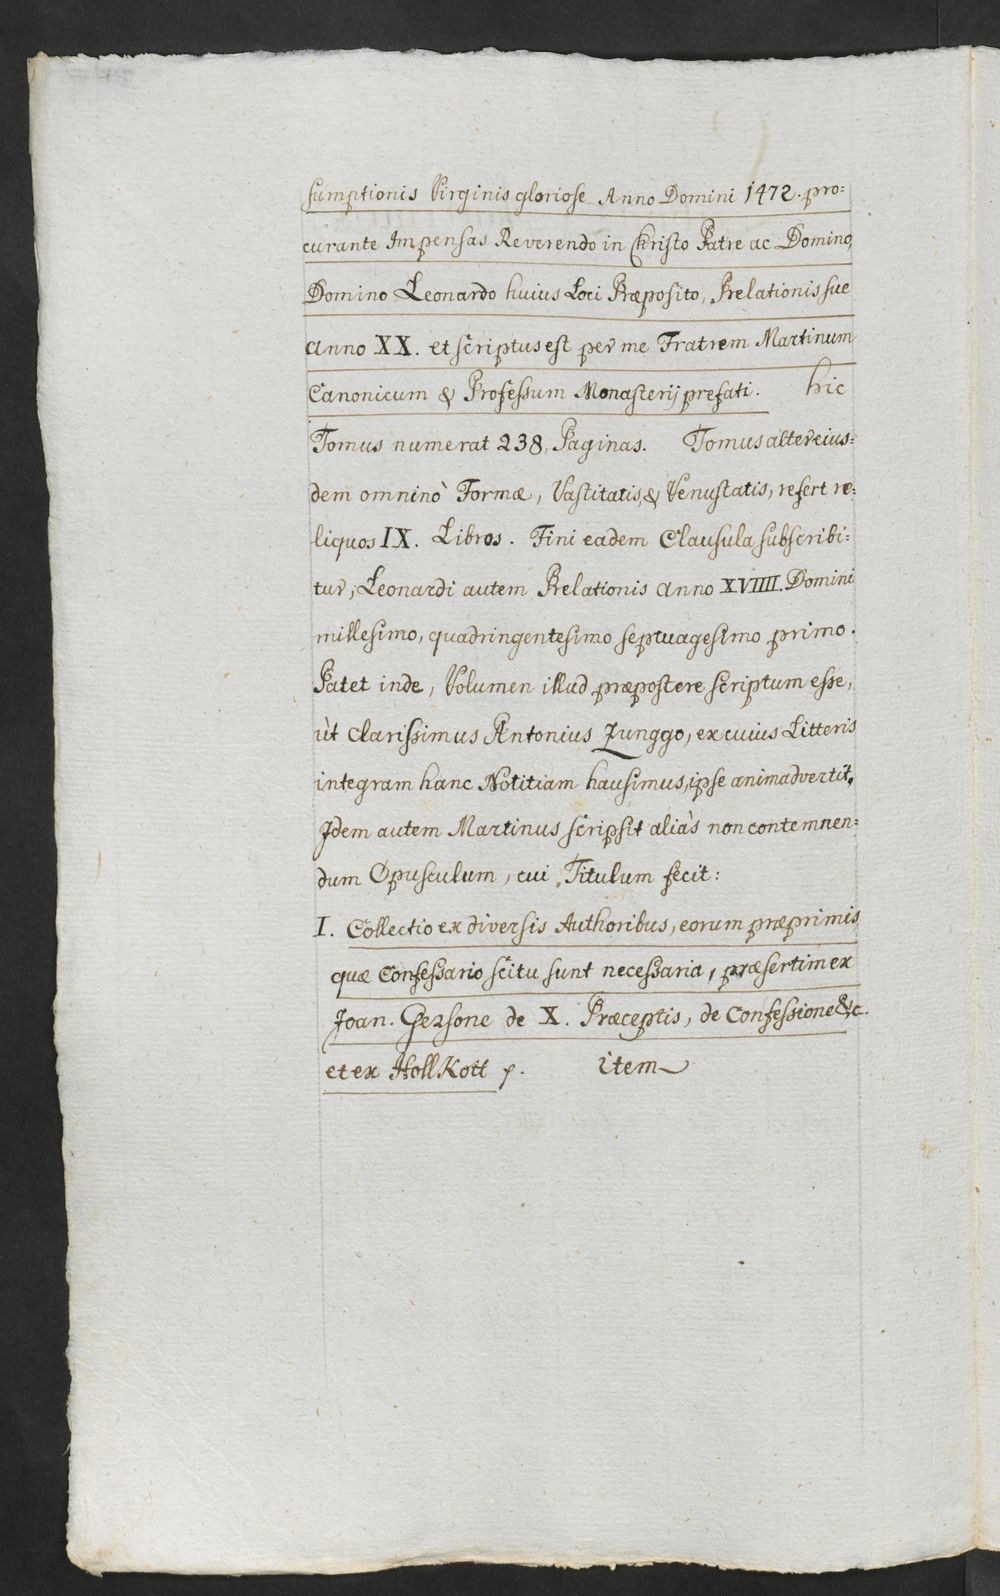 sumptionis Virginis gloriose Anno Domini 1472. pro=
curante Impensas Reverendo in Christo Patre ac Domino,
Domino Leonardo huius Loci Præposito, Prelationis sue
Anno XX. et scriptus est per me Fratrem Martinum
Canonicum & Professum Monasterij prefati. hic
Tomus numerat 238, Paginas. Tomus alter eius=
dem omninò Formæ, Vastitatis, & Venustatis, refert re=
liquos IX. Libros. Fini eadem Clausula subscribi=
tur, Leonardi autem Prelationis Anno XVIIII. Domini
millesimo, quadringentesimo septuagesimo primo.
Patet inde, Volumen illud præpostere scriptum esse,
ùt Clarissimus Antonius Junggo, ex cuius Litteris
integram hanc Notitiam hausimus, ipse animadvertit.
Idem autem Martinus scripsit aliàs non contemnen=
dum Opusculum, cui Titulum fecit:
I. Collectio ex diversis Authoribus, eorum præprimis
quæ Confessario scitu sunt necessaria, præsertim ex
Joan. Gersone de X. Præceptis, de Confessione &c.
et ex Hollkott p. item